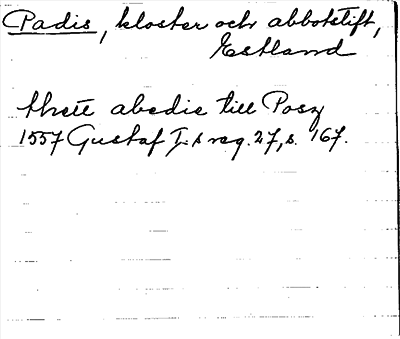 Padis, kloster och abbotstift,
Estland
thett abedie till Posz
1557 Gustaf I.s reg. 27, s. 167.